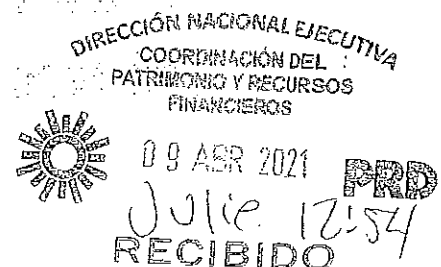 DIRECCIÓN NACIONAL EJECUTIVA
COORDINACIÓN DEL
PATRIMONIO Y RECURSOS
FINANCIEROS
09 ABR 2021
PRD
Julie. 12:54
RECIBIDO